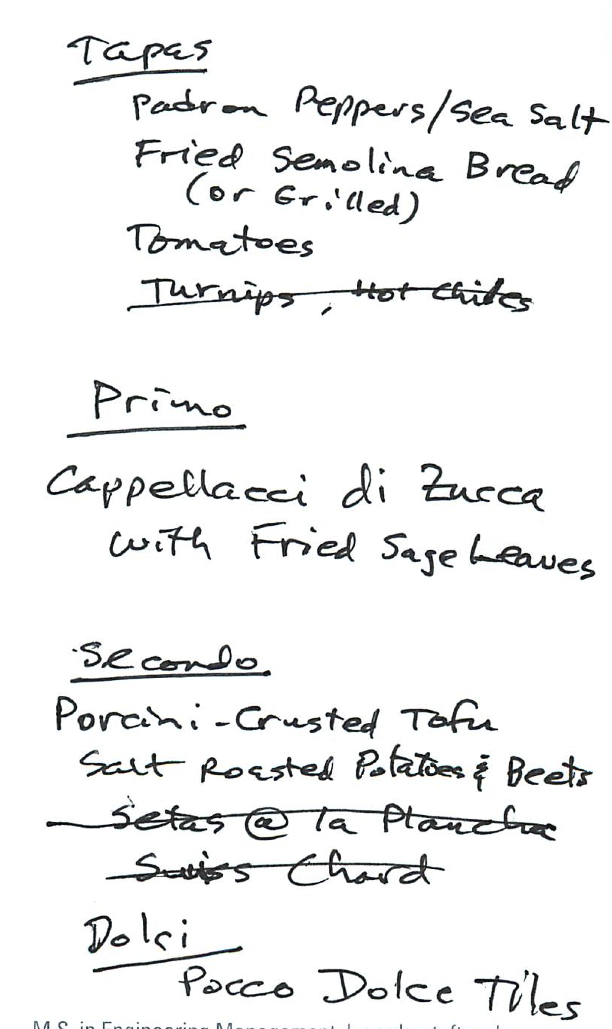 Tapas
Padron Peppers/Sea Salt
Fried Semolina Bread
(or Grilled)
Tomatoes
Turnips, Hot Chiles
Primo
Cappellacci di Zucca
with Fried Sage Leaves
Secondo
Porcini-Crusted Tofu
Salt Roasted Potatoes & Beets
Setas @ la Plancha
Swiss Chard
Dolci
Pocco Dolce Tiles
M.S. in Engineering Management